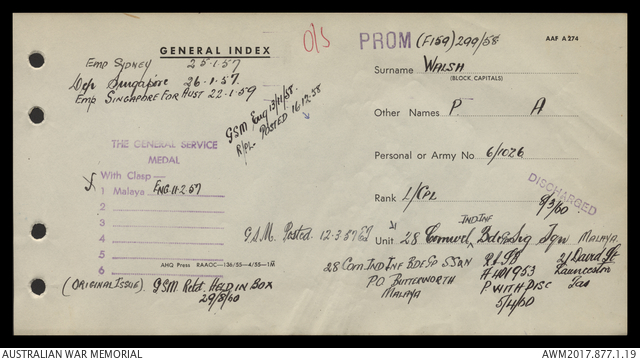 GENERAL INDEX
O/S
PROM (F159) 299/58
AAF A 274
Emp Sydney 25·1·57
Dep Singapore 26·1·57
Emp SINGAPORE FOR AUST 22·1·59
Surname WALSH
(BLOCK, CAPITALS)
GSM Eng 13/11/58.
R/PL POSTED 16·12·58
Other Names P. A
THE GENERAL SERVICE
MEDAL
With Clasp—
1 Malaya ENG·11·2·57
2
3
4
5
6
Personal or Army No. 6/1026
DISCHARGED
8/3/60
Rank L/CPL
IND INF
GSM. Posted. 12·3·57
Unit 28 Comwel Bde Sig Sqn MALAYA.
AHQ Press RAAOC—136/55—4/55—1M
28 Com IND INF BDE GP S SQN
PO BUTTERWORTH
MALAYA
21 David St
Launceston
Tas
A 101953
P WITH DISC
5/4/60
(ORIGINAL ISSUE). GSM Retd. HELD IN BOX
29/8/60
AUSTRALIAN WAR MEMORIAL
AWM2017.877.1.19